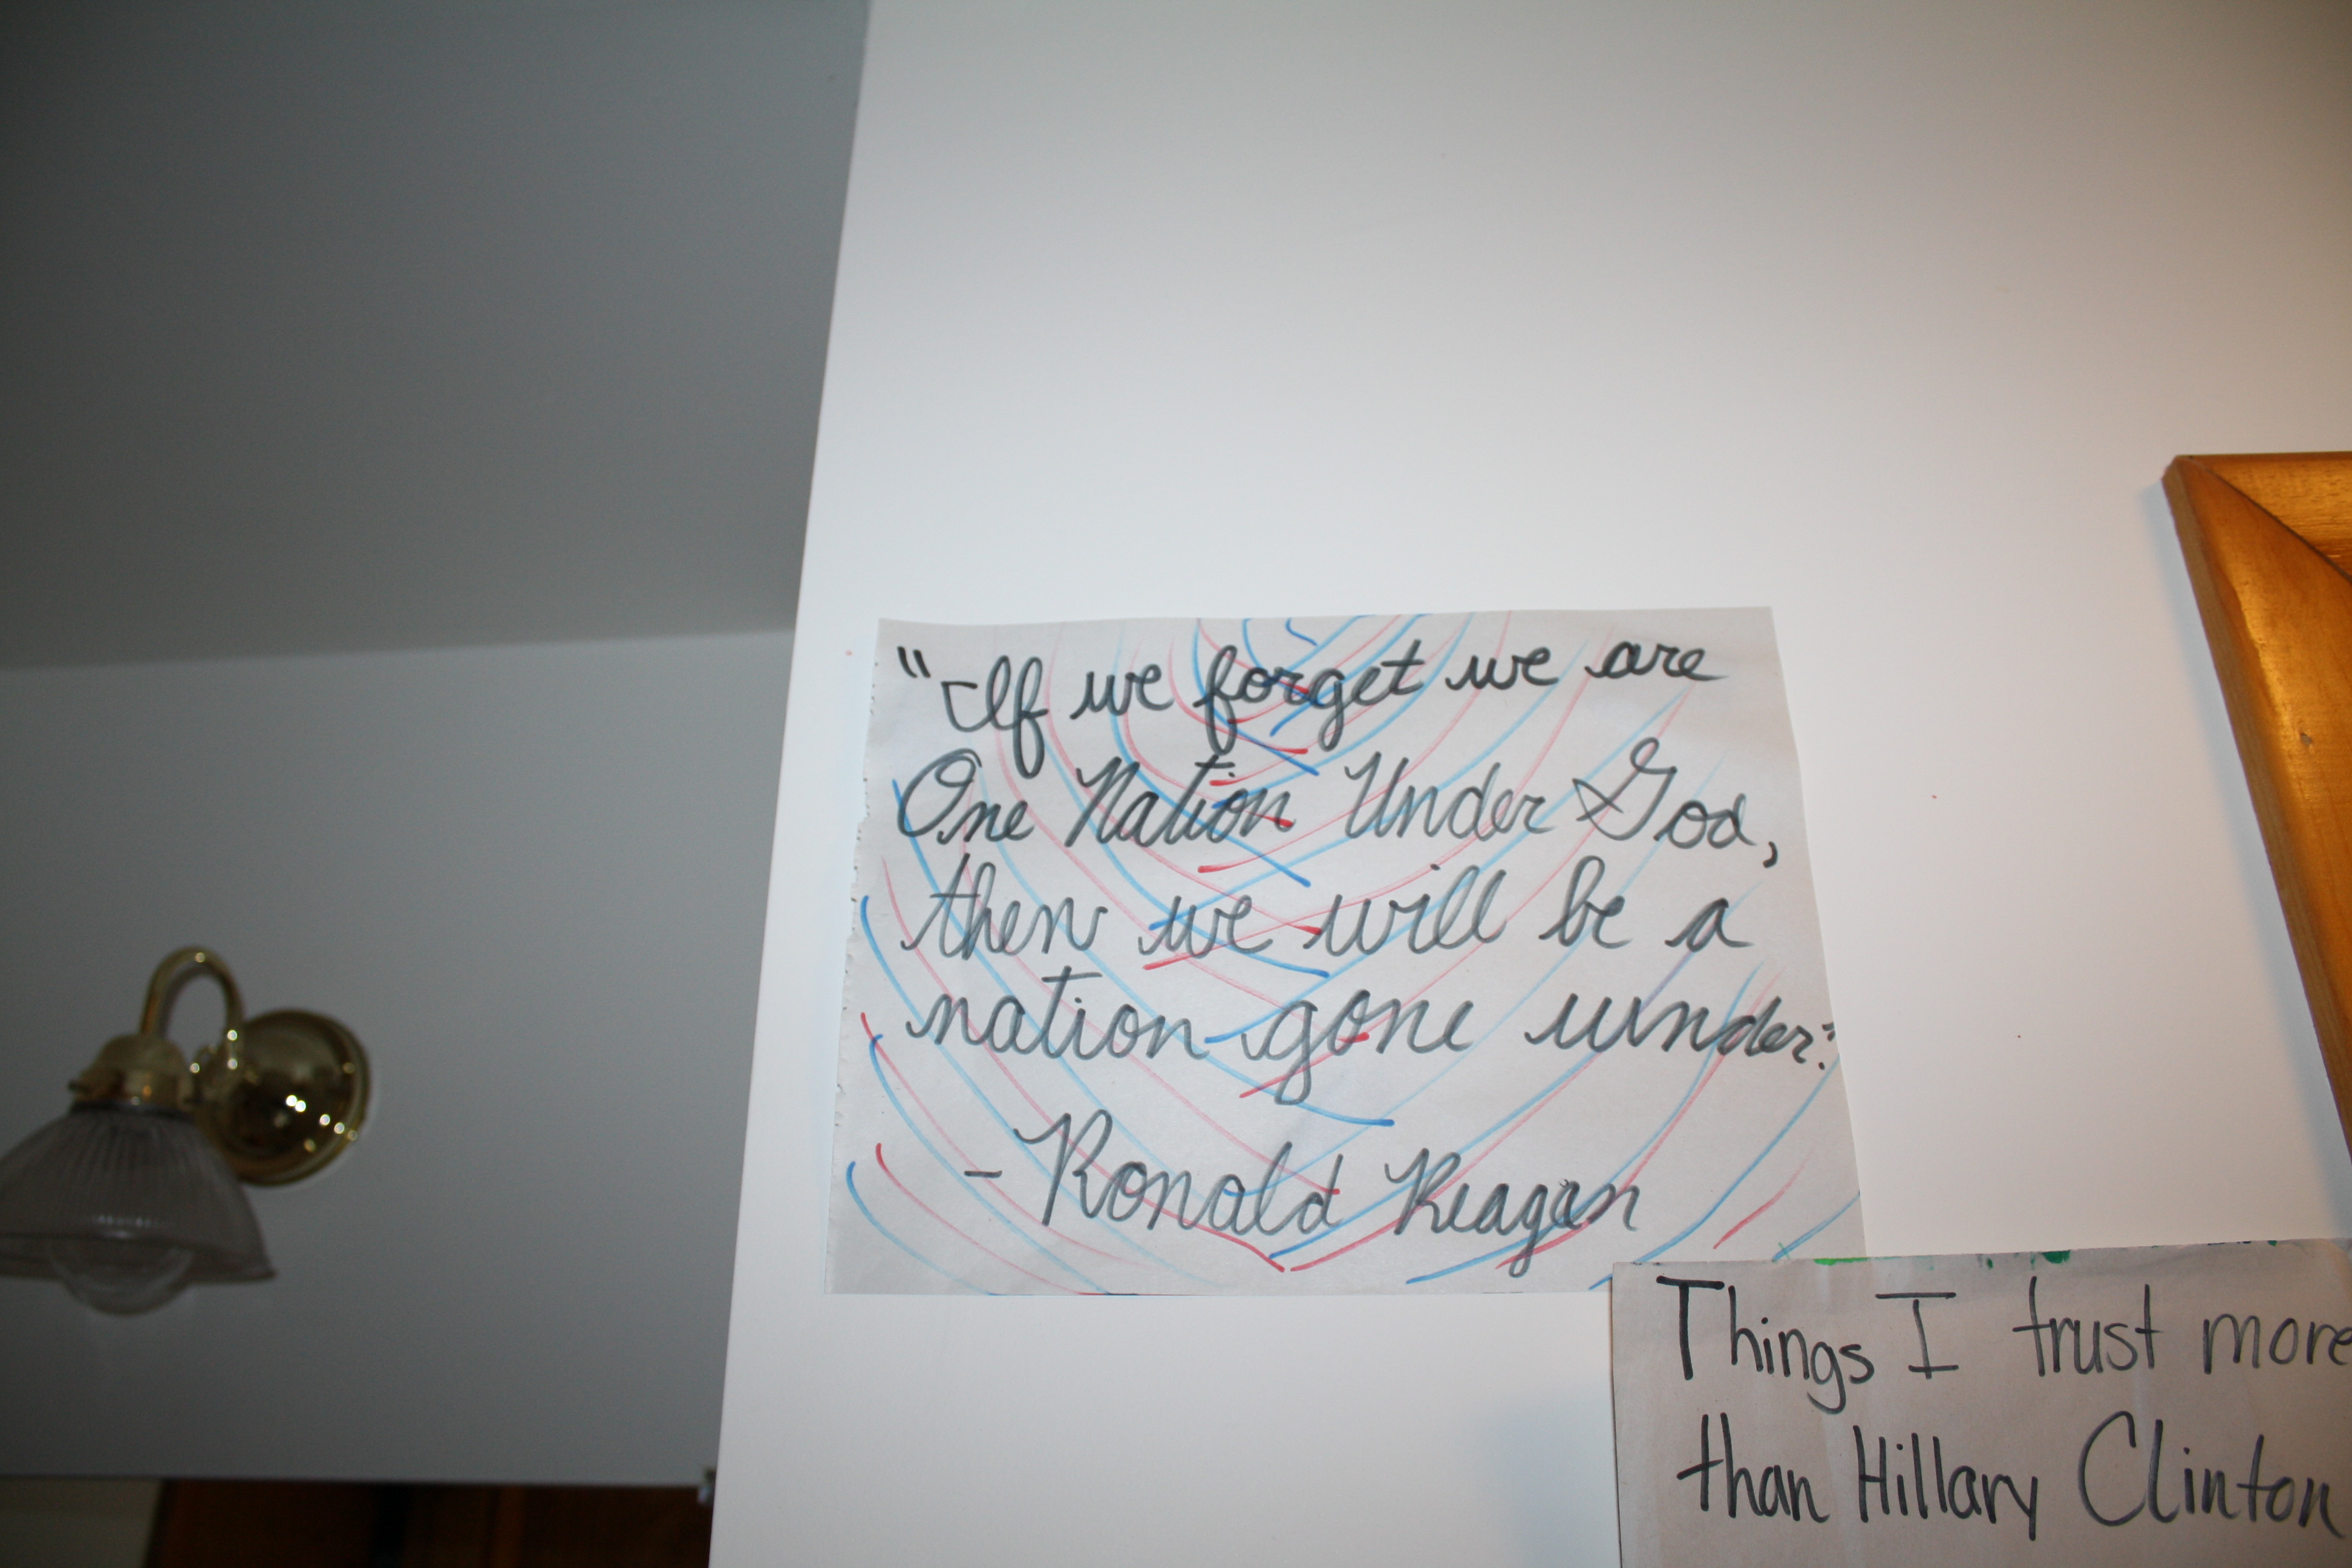 "If we forget we are
One Nation Under God,
then we will be a
nation gone under."
- Ronald Reagan
Things I trust more
than Hillary Clinton